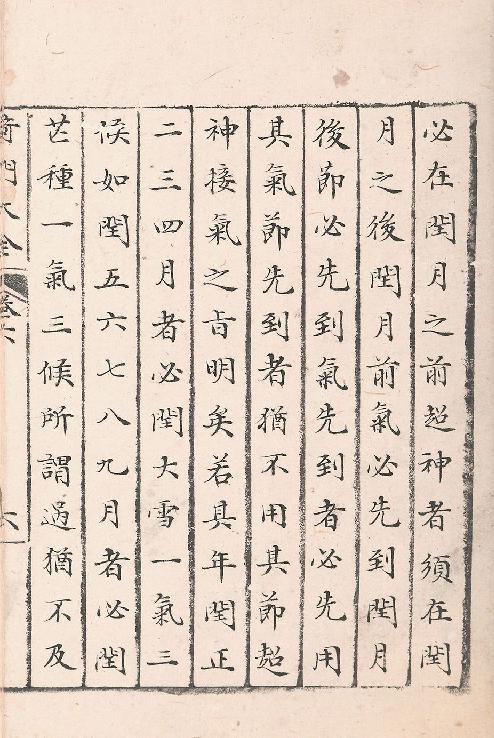 必在閏月之前超神者須在閏
月之後閏月前氣必先到閏月
後節必先到氣先到者必先用
其氣節先到者猶不用其節超
神接氣之旨明矣若其年閏正
二三四月者必閏大雪一氣三
候如閏五六七八九月者必閏
芒種一氣三候所謂過猶不及
奇門大全 卷六 六